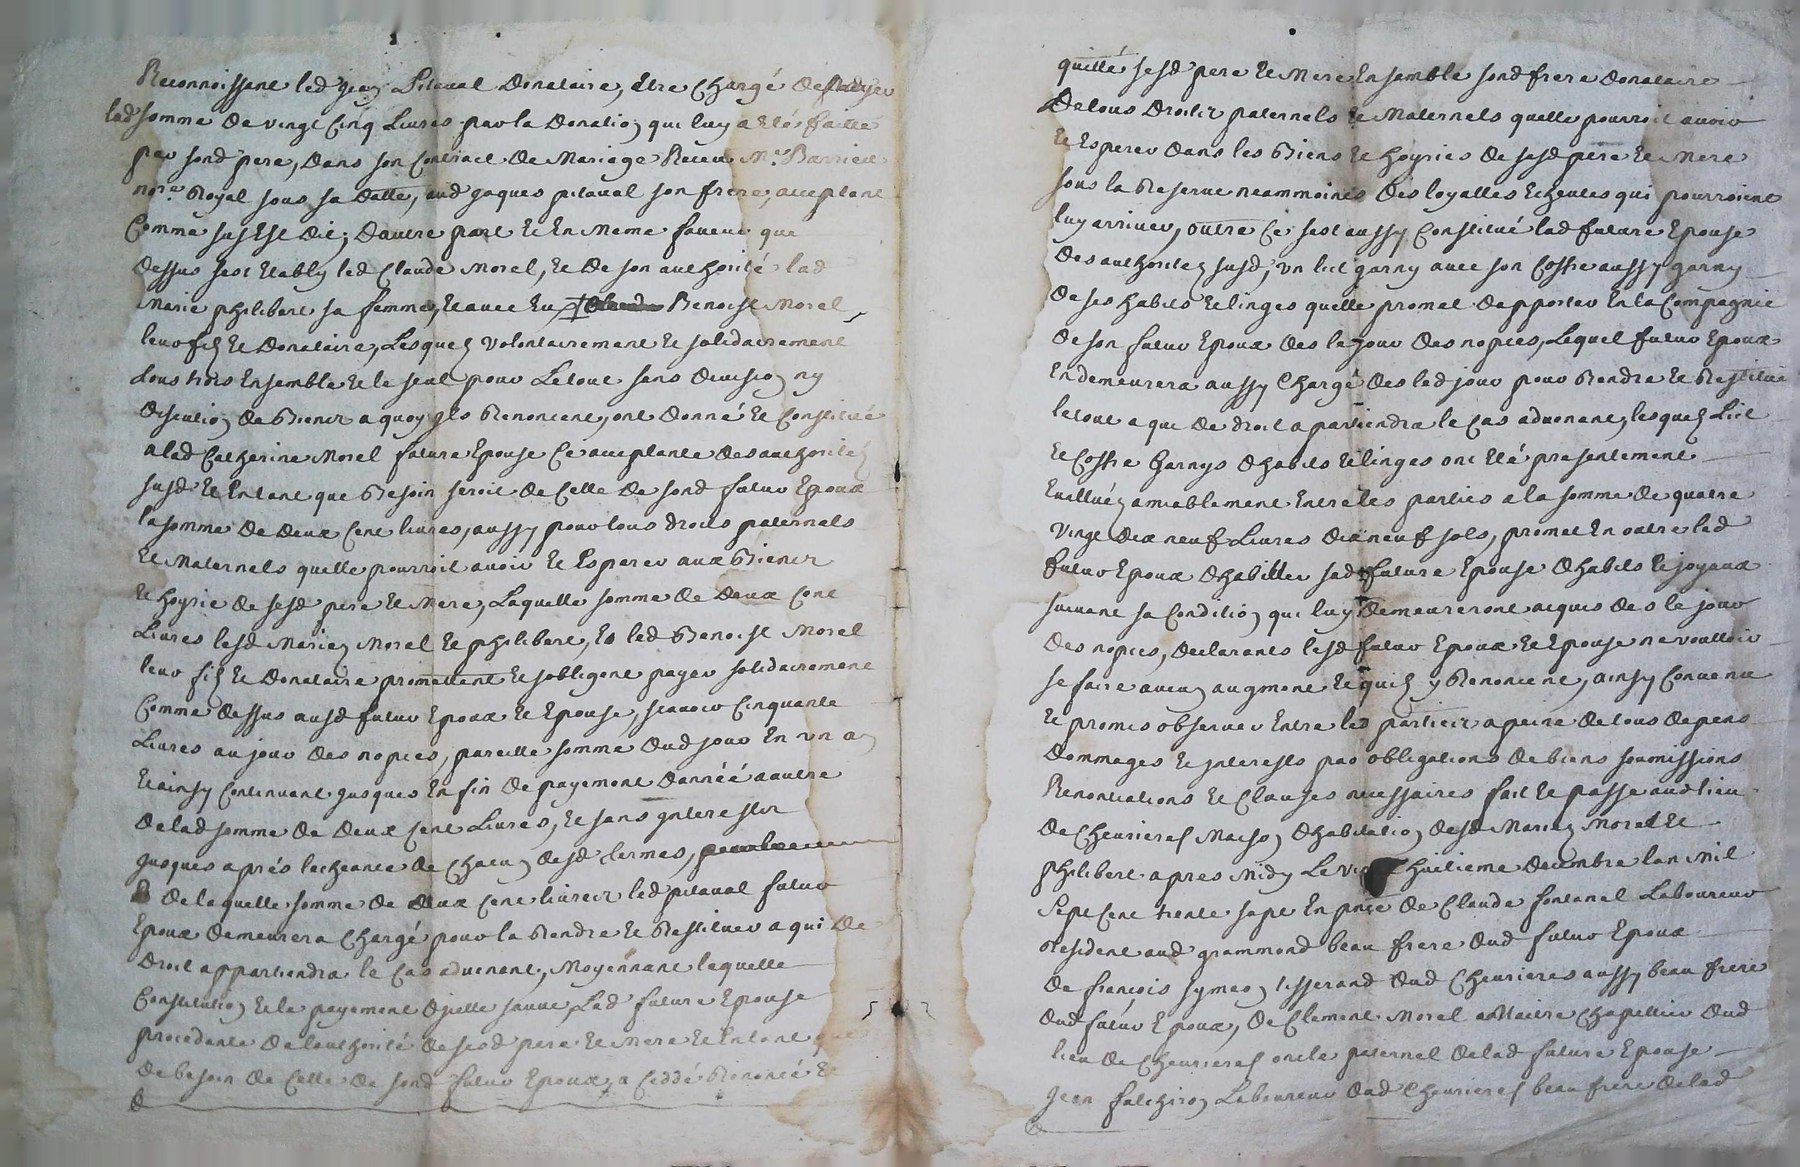 Reconnoissant led jean Pitaval Donataire, etre Chargé de payer
lad somme de vingt Cinq Livres par la Donation qui luy a etés faitte
par sond pere, dans son Contract de Mariage Receu Mr Barrieu
nore Royal sous sa datte, aud jaques pitaval son frere, acceptant
Comme sus Est dit; dautre part Et En Meme faveur que
dessus sest Etably led Claude Morel, Et de son authorité lad
Marie philibert sa femme, Et avec Eux Benoist Morel
leur fils Et Donataire, Lesquels volontairement Et solidairement
tous trois Ensemble Et le seul pour Letout sans division ny
discution de Biens a quoy ils Renoncent, ont donné Et Constitué
a lad Catherine Morel future Epouse Ce acceptante des authorités
susd Et Entant que Besoin seroit de Celle de sond futur Epoux
la somme de deux Cent livres, aussy pour tous droits paternels
Et Maternels quelle pourroit avoir Et Esperer aux Biens
Et hoyrie de sesd pere Et Mere, Laquelle somme de deux Cent
Livres lesd Mariez Morel Et philibert, Et led Benoist Morel
leur fils Et Donataire promettent Et sobligent payer solidairement
Comme dessus ausd futur Epoux Et Epouse, scavoir Cinquante
Livres au jour des nopces, pareille somme dud jour En un an
Et ainsy Continuant jusques En fin de payement dannéé a autre
de lad somme de deux Cent Livres, Et sans interests
jusques aprés lecheance de Chacun desd termes,
de laquelle somme de deux Cent livres led pitaval futur
Epoux demeurera Chargé pour la Rendre Et Restituer a qui de
droit appartiendra le Cas advenant, Moyennant laquelle
Constitution Et le payement dicelle sauve Lad future Epouse
procedante de lauthorité de sesd pere Et Mere Et Entant que
de besoin de Celle de sond futur Epoux, a Ceddé Renoncé Et
quitté sesd pere Et Mere Ensemble sond frere donataire
de tous droits paternels Et Maternels quelle pourroit avoir
Et Esperer dans les Biens Et hoyries de sesd pere Et Mere
sous la Reserve neammoins des loyalles Echeutes qui pourroient
luy arriver, outre Ce sest aussy Constitué lad future Epouse
des authoritez susd, un lict garny avec son Coffre aussy garny
de ses habits Et linges quelle promet dapporter En la Compagnie
de son futur Epoux des le jour des nopces, Lequel futur Epoux
En demeurera aussy Chargé des led jour pour Rendre Et Restituer
letout a qui de droit apartiendra le Cas advenant, lesquels Lict
Et Coffre Garnys dhabits Et linges ont Eté presentement
Evallués amiablement Entre les parties a la somme de quatre
vingt dix neuf Livres dix neuf sols, promet En outre led
futur Epoux dhabiller sad future Epouse dhabits Et joyaux
suivant sa Condition qui luy demeureront acquis des le jour
des nopces, declarants lesd futur Epoux Et Epouse ne voulloir
se faire aucun augment Et quils y Renoncent, ainsy Convenu
Et promis observer Entre les parties a peine de tous depens
dommages Et interests par obligations de biens soumissions
Renontiations Et Clauses necessaires fait Et passé aud lieu
de Chevrieres Maison dhabitation desd Mariez Morel Et
philibert apres Midy Le vingt huitieme decembre lan Mil
Sept Cent trente sept En pnce de Claude fontanel Laboureur
resident aud grammond beau frere dud futur Epoux
de francois symeon tisserand dud Chevrieres aussy beau frere
dud futur Epoux, de Clement Morel Maitre Chapellier dud
lieu de Chevrieres oncle paternel delad future Epouse
jean falchiron Laboureur dud Chevrieres beau frere delad